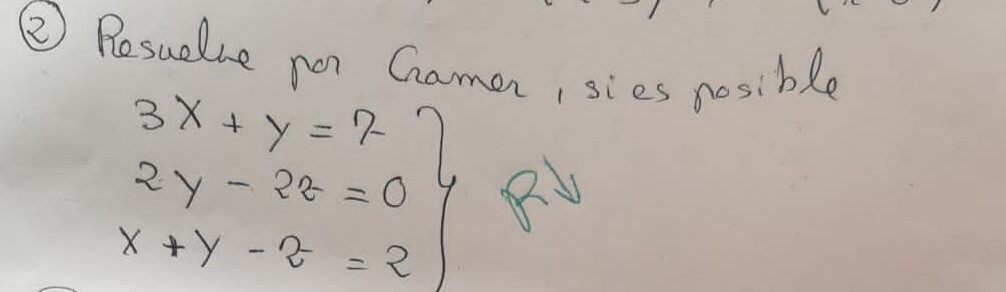 ② Resuelve por Cramer, si es posible
3X + y = 7
2y - 2z = 0
X + y - z = 2
R↓